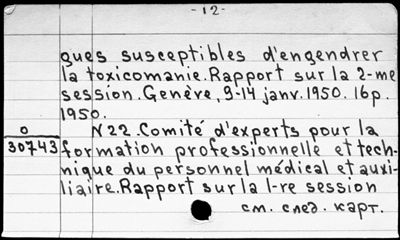 - 12-
ques susceptibles d'engendrer
la toxicomanie. Rapport sur la 2-me
session. Genève, 9-14 janv. 1950. 16p.
1950.
O
30743
N 22. Comité d'experts pour la
formation professionnelle et tech-
nique du personnel médical et auxi-
liaire. Rapport sur la 1-re session
см. след. карт.